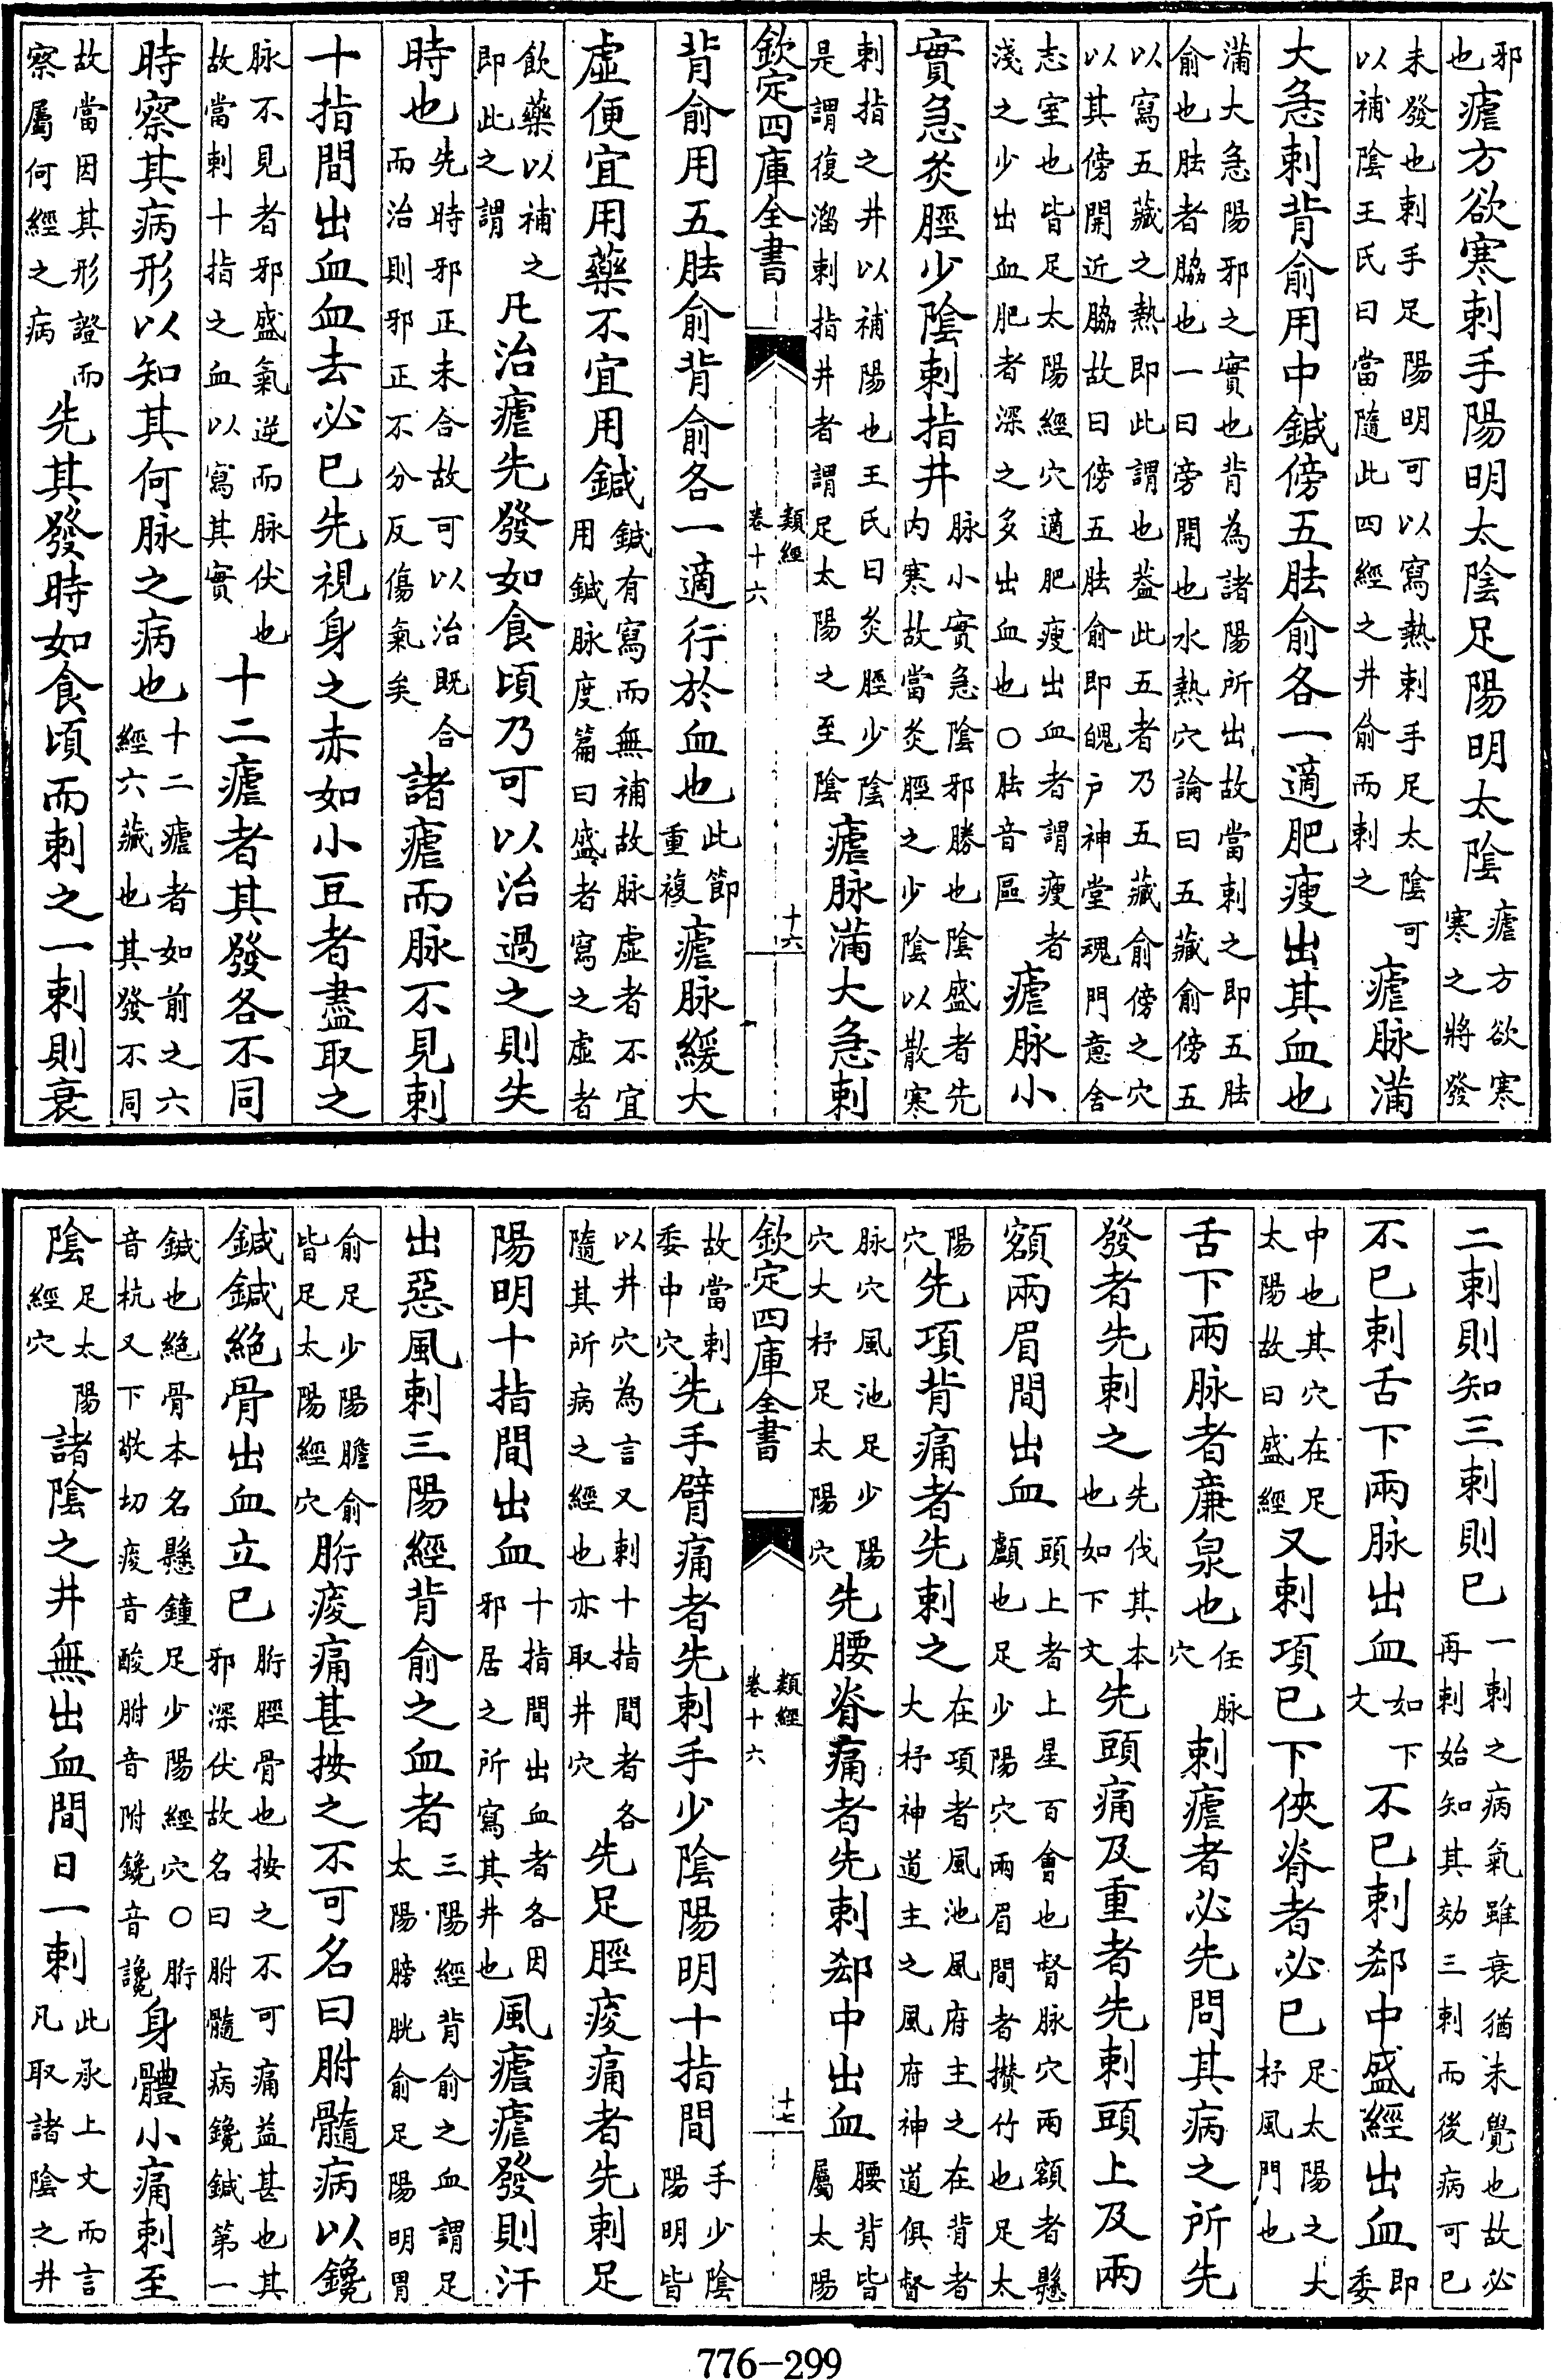 邪也瘧方欲寒刺手陽明太陰足陽明太陰瘧方欲寒寒之將發
未發也刺手足陽明可以寫熱刺手足太陰可以補陰王氏曰當隨此四經之井俞而刺之瘧脉滿
大急刺背俞用中鍼傍五胠俞各一適肥瘦出其血也
滿大急陽邪之實也背為諸陽所出故當刺之即五胠俞也胠者脇也一曰旁開也水熱穴論曰五藏俞傍五
以寫五藏之熱即此謂也葢此五者乃五藏俞傍之穴以其傍開近脇故曰傍五胠俞即魄户神堂魂門意舍
志室也皆足太陽經穴適肥瘦出血者謂瘦者淺之少出血肥者深之多出血也○胠音區瘧脉小
實急灸脛少陰刺指井脉小實急陰邪勝也陰盛者先内寒故當灸脛之少陰以散寒
刺指之井以補陽也王氏曰灸脛少陰是謂復溜刺指井者謂足太陽之至陰瘧脉滿大急刺
欽定四庫全書
類經
卷十六
十六
背俞用五胠俞背俞各一適行於血也此節重複瘧脉緩大
虛便宜用藥不宜用鍼鍼有寫而無補故脉虛者不宜用鍼脉度篇曰盛者寫之虛者
飲藥以補之即此之謂凡治瘧先發如食頃乃可以治過之則失
時也先時邪正未合故可以治既合而治則邪正不分反傷氣矣諸瘧而脉不見刺
十指間出血血去必已先視身之赤如小豆者盡取之
脉不見者邪盛氣逆而脉伏也故當刺十指之血以寫其實十二瘧者其發各不同
時察其病形以知其何脉之病也十二瘧者如前之六經六藏也其發不同
故當因其形證而察屬何經之病先其發時如食頃而刺之一刺則衰
二刺則知三刺則已一刺之病氣雖衰猶未覺也故必再刺始知其効三刺而後病可已
不已刺舌下兩脉出血如下文不已刺郄中盛經出血即委
中也其穴在足太陽故曰盛經又刺項已下俠脊者必已足太陽之大杼風門也
舌下兩脉者亷泉也任脉穴刺瘧者必先問其病之所先
發者先刺之先伐其本也如下文先頭痛及重者先刺頭上及兩
額兩眉間出血頭上者上星百會也督脉穴兩額者懸顱也足少陽穴兩眉間者攢竹也足太
陽穴先項背痛者先刺之在項者風池風府主之在背者大杼神道主之風府神道俱督
脉穴風池足少陽穴大杼足太陽穴先腰脊痛者先刺郄中出血腰背皆屬太陽
欽定四庫全書
類經
卷十六
十七
故當刺委中穴先手臂痛者先刺手少陰陽明十指間手少陰陽明皆
以井穴為言又刺十指間者各隨其所病之經也亦取井穴先足脛痠痛者先刺足
陽明十指間出血十指間出血者各因邪居之所寫其井也風瘧瘧發則汗
出惡風刺三陽經背俞之血者三陽經背俞之血謂足太陽膀胱俞足陽明胃
俞足少陽膽俞皆足太陽經穴胻痠痛甚按之不可名曰胕髓病以鑱
鍼鍼絶骨出血立已胻脛骨也按之不可痛益甚也其邪深伏故名曰胕髓病鑱鍼第一
鍼也絶骨本名懸鐘足少陽經穴○胻音杭又下敬切痠音酸胕音附鑱音讒身體小痛刺至
陰足太陽經穴諸陰之井無出血間日一刺此承上文而言凡取諸陰之井
776-299